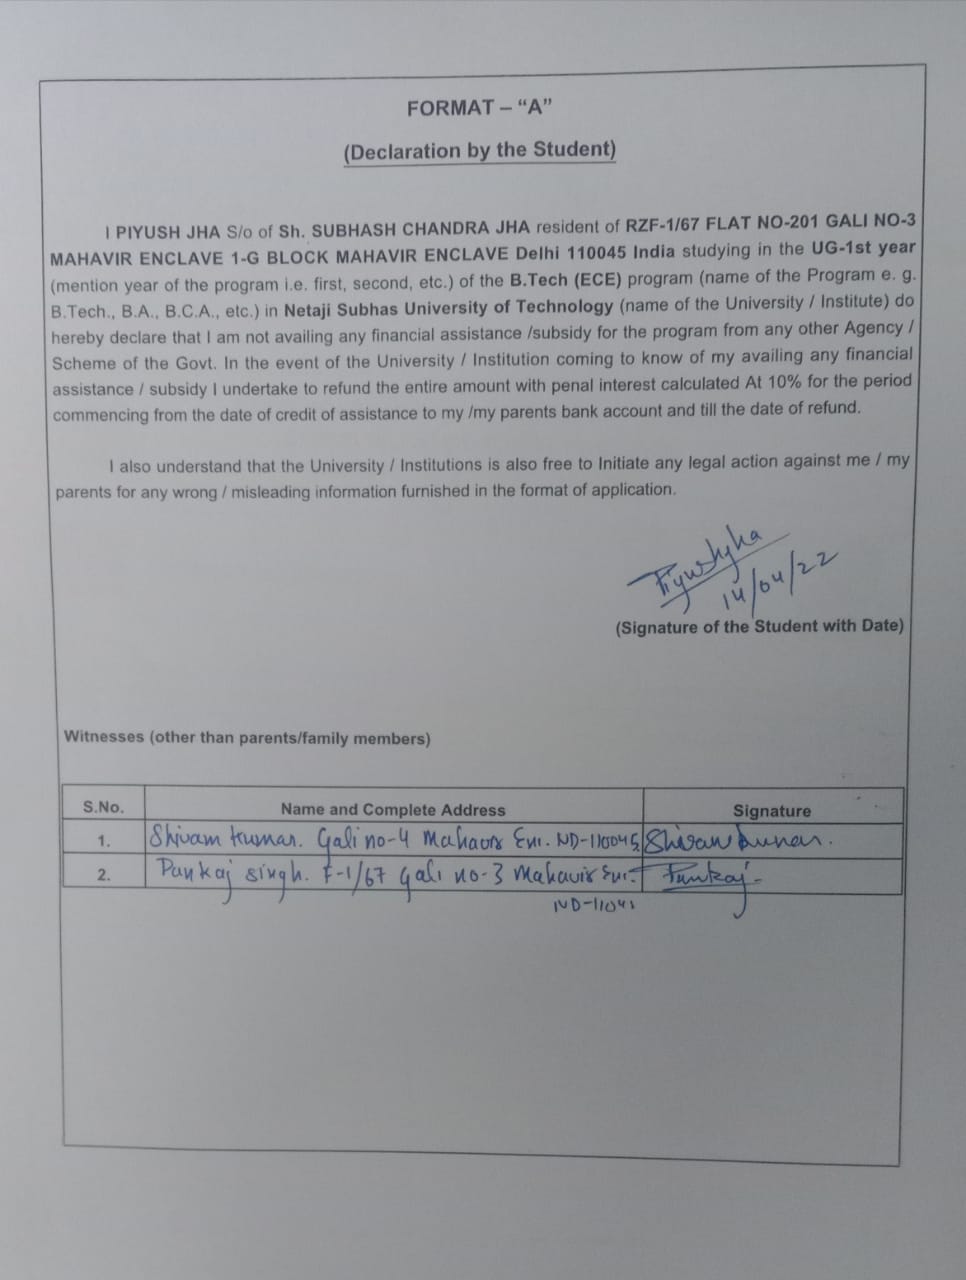 FORMAT – “A”
(Declaration by the Student)
I PIYUSH JHA S/o of Sh. SUBHASH CHANDRA JHA resident of RZF-1/67 FLAT NO-201 GALI NO-3
MAHAVIR ENCLAVE 1-G BLOCK MAHAVIR ENCLAVE Delhi 110045 India studying in the UG-1st year
(mention year of the program i.e. first, second, etc.) of the B.Tech (ECE) program (name of the Program e. g.
B.Tech., B.A., B.C.A., etc.) in Netaji Subhas University of Technology (name of the University / Institute) do
hereby declare that I am not availing any financial assistance /subsidy for the program from any other Agency /
Scheme of the Govt. In the event of the University / Institution coming to know of my availing any financial
assistance / subsidy I undertake to refund the entire amount with penal interest calculated At 10% for the period
commencing from the date of credit of assistance to my /my parents bank account and till the date of refund.
I also understand that the University / Institutions is also free to Initiate any legal action against me / my
parents for any wrong / misleading information furnished in the format of application.
14/04/22
(Signature of the Student with Date)
Witnesses (other than parents/family members)
S.No. Name and Complete Address Signature
1. Shivam kumar. Gali no-4 Mahavir Enc. ND-110045
2. Pankaj singh. F-1/67 Gali no-3 Mahavir Enc- Pankaj